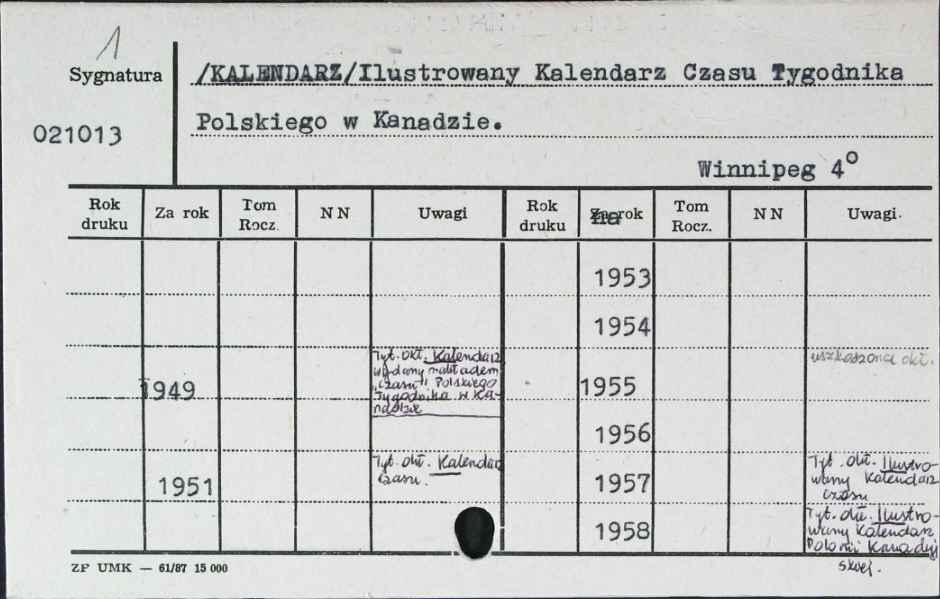 1
Sygnatura
021013
/KALENDARZ/Ilustrowany Kalendarz Czasu Tygodnika
Polskiego w Kanadzie.
Winnipeg 4°
Rok druku Za rok Tom Rocz. NN Uwagi Rok druku na rok Tom Rocz. NN Uwagi.
1953
1954
1949 Tyt. okł. Kalendarz
wydany nakładem
"Czasu" Polskiego
Tygodnika w Ka-
nadzie
1955 uszkodzona okł.
1956
1951 Tyt. okł. Kalendarz
Czasu.
1957 Tyt. okł. Ilustro-
wany Kalendarz
Czasu
1958 Tyt. okł. Ilustro-
wany Kalendarz
Polonii Kanadyj
skiej.
ZP UMK — 61/87 15 000